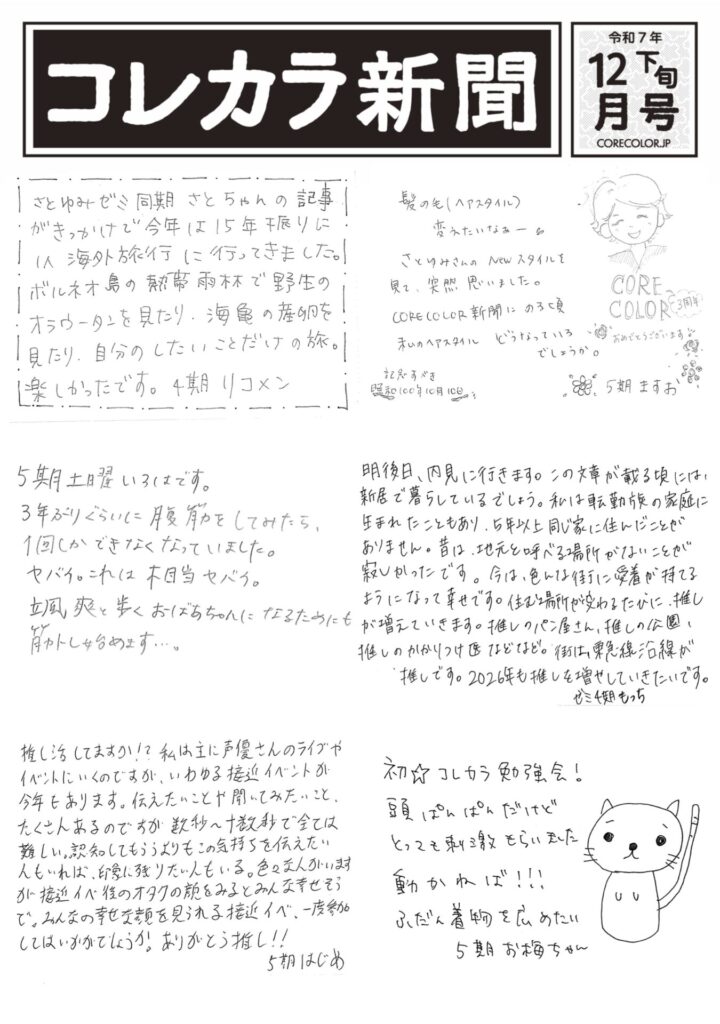 コレカラ新聞
令和7年
12月下旬号
CORECOLOR.JP
さとゆみゼミ同期 さとちゃんの記事
がきっかけで今年は15年振りに
1人海外旅行に行ってきました。
ボルネオ島の熱帯雨林で野生の
オラウータンを見たり、海亀の産卵を
見たり、自分のしたいことだけの旅。
楽しかったです。4期 リコメン
髪の毛(ヘアスタイル)
変えたいなぁー。
さとゆみさんの Newスタイルを
見て、突然思いました。
CORECOLOR新聞に のる頃
私のヘアスタイル どうなっている
でしょうか。
記念すべき
昭和100年10月10日
CORE
COLOR
3周年
おめでとうございます
5期 ますお
5期土曜いろはです。
3年ぶりぐらいに腹筋をしてみたら、
1回しかできなくなっていました。
ヤバイ。これは本当ヤバイ。
颯爽と歩くおばあちゃんになるためにも
筋トレ始めます…。
明後日、内見に行きます。この文章が載る頃には、
新居で暮らしているでしょう。私は転勤族の家庭に
生まれたこともあり、5年以上同じ家に住んだことが
ありません。昔は、地元と呼べる場所がないことが
寂しかったです。今は、色んな街に愛着が持てる
ようになって幸せです。住む場所が変わるたびに、推し
が増えていきます。推しのパン屋さん、推しの公園、
推しのかかりつけ医などなど。街は、東急線沿線が
推しです。2026年も推しを増やしていきたいです。
ゼミ4期もっち
推し活してますか!?私は主に声優さんのライブや
イベントにいくのですが、いわゆる接近イベントが
今年もあります。伝えたいことや聞いてみたいこと、
たくさんあるのですが数秒〜十数秒で全ては
難しい。認知してもらうよりもこの気持ちを伝えたい
人もいれば、印象に残りたい人もいる。色々な人がいます
が接近イベ後のオタクの顔をみるとみんな幸せそう
で。みんなの幸せな顔を見られる接近イベ、一度参加
してはいかがでしょうか。ありがとう推し!!
5期はじめ
初☆コレカラ勉強会!
頭ぱんぱんだけど
とっても刺激もらいました
動かねば!!!
ふだん着物を広めたい
5期お梅ちゃん